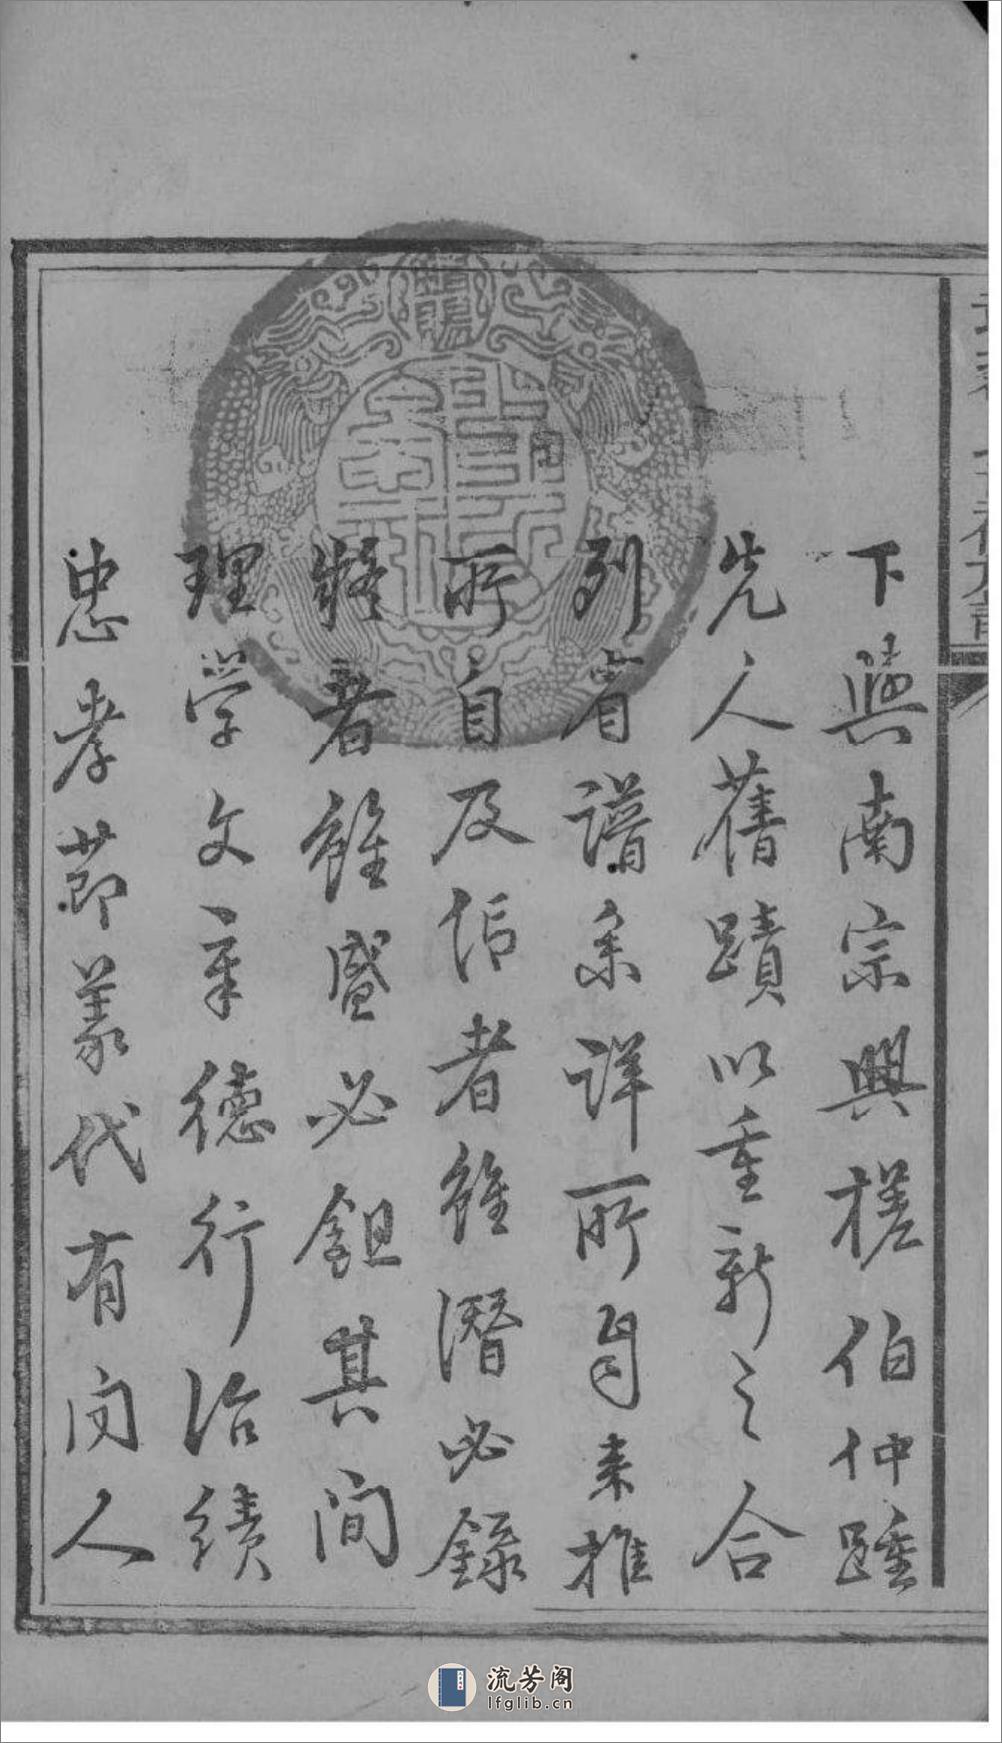 下與南宗興槎伯仲踵
先人舊蹟以重新之合
列省譜系詳所自來推
所自及信者雖潛必錄
疑者雖盛必鉏其間
理学文章德行治績
忠孝節義代有闻人
流芳阁
lfglib.cn